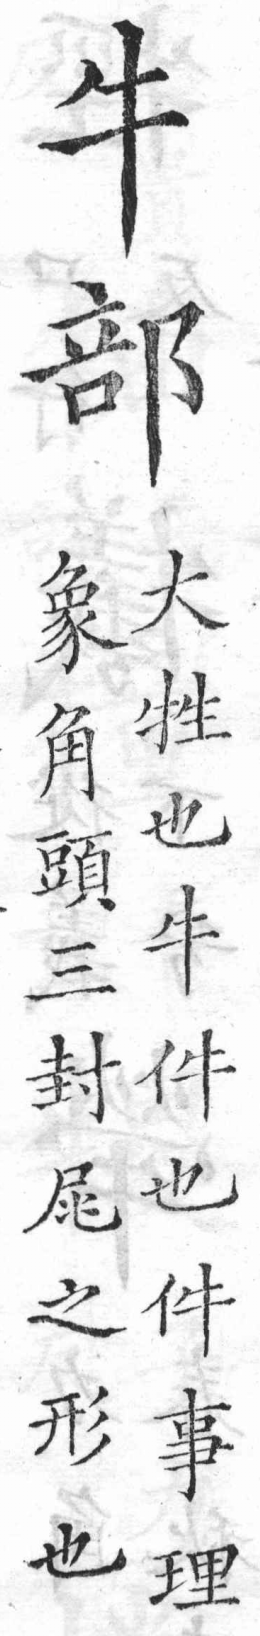 牛部
大牲也牛件也件事理
象角頭三封㞑之形也